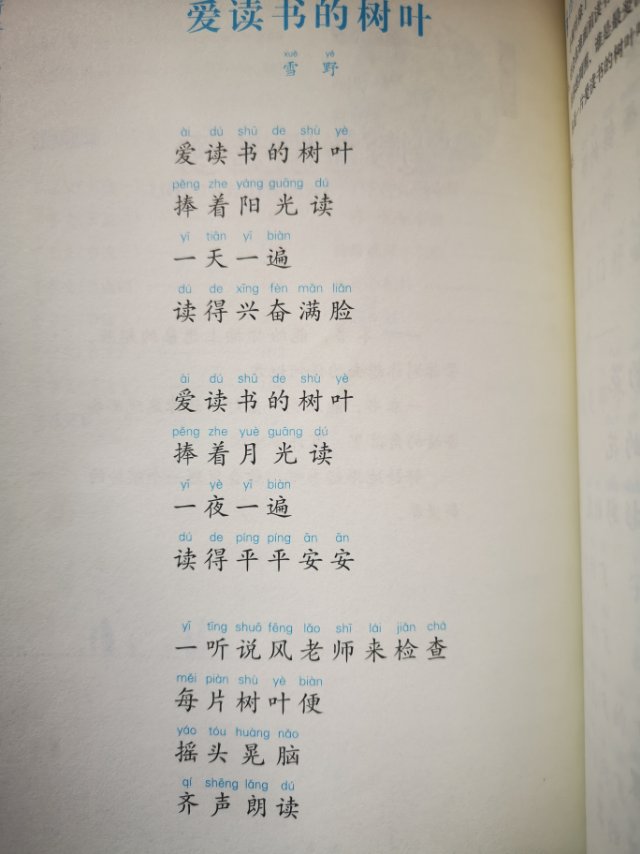 爱读书的树叶
xuě yě
雪野
ài dú shū de shù yè
爱读书的树叶
pěng zhe yáng guāng dú
捧着阳光读
yì tiān yí biàn
一天一遍
dú de xīng fèn mǎn liǎn
读得兴奋满脸
ài dú shū de shù yè
爱读书的树叶
pěng zhe yuè guāng dú
捧着月光读
yí yè yí biàn
一夜一遍
dú de píng píng ān ān
读得平平安安
yì tīng shuō fēng lǎo shī lái jiǎn chá
一听说风老师来检查
měi piàn shù yè biàn
每片树叶便
yáo tóu huàng nǎo
摇头晃脑
qí shēng lǎng dú
齐声朗读